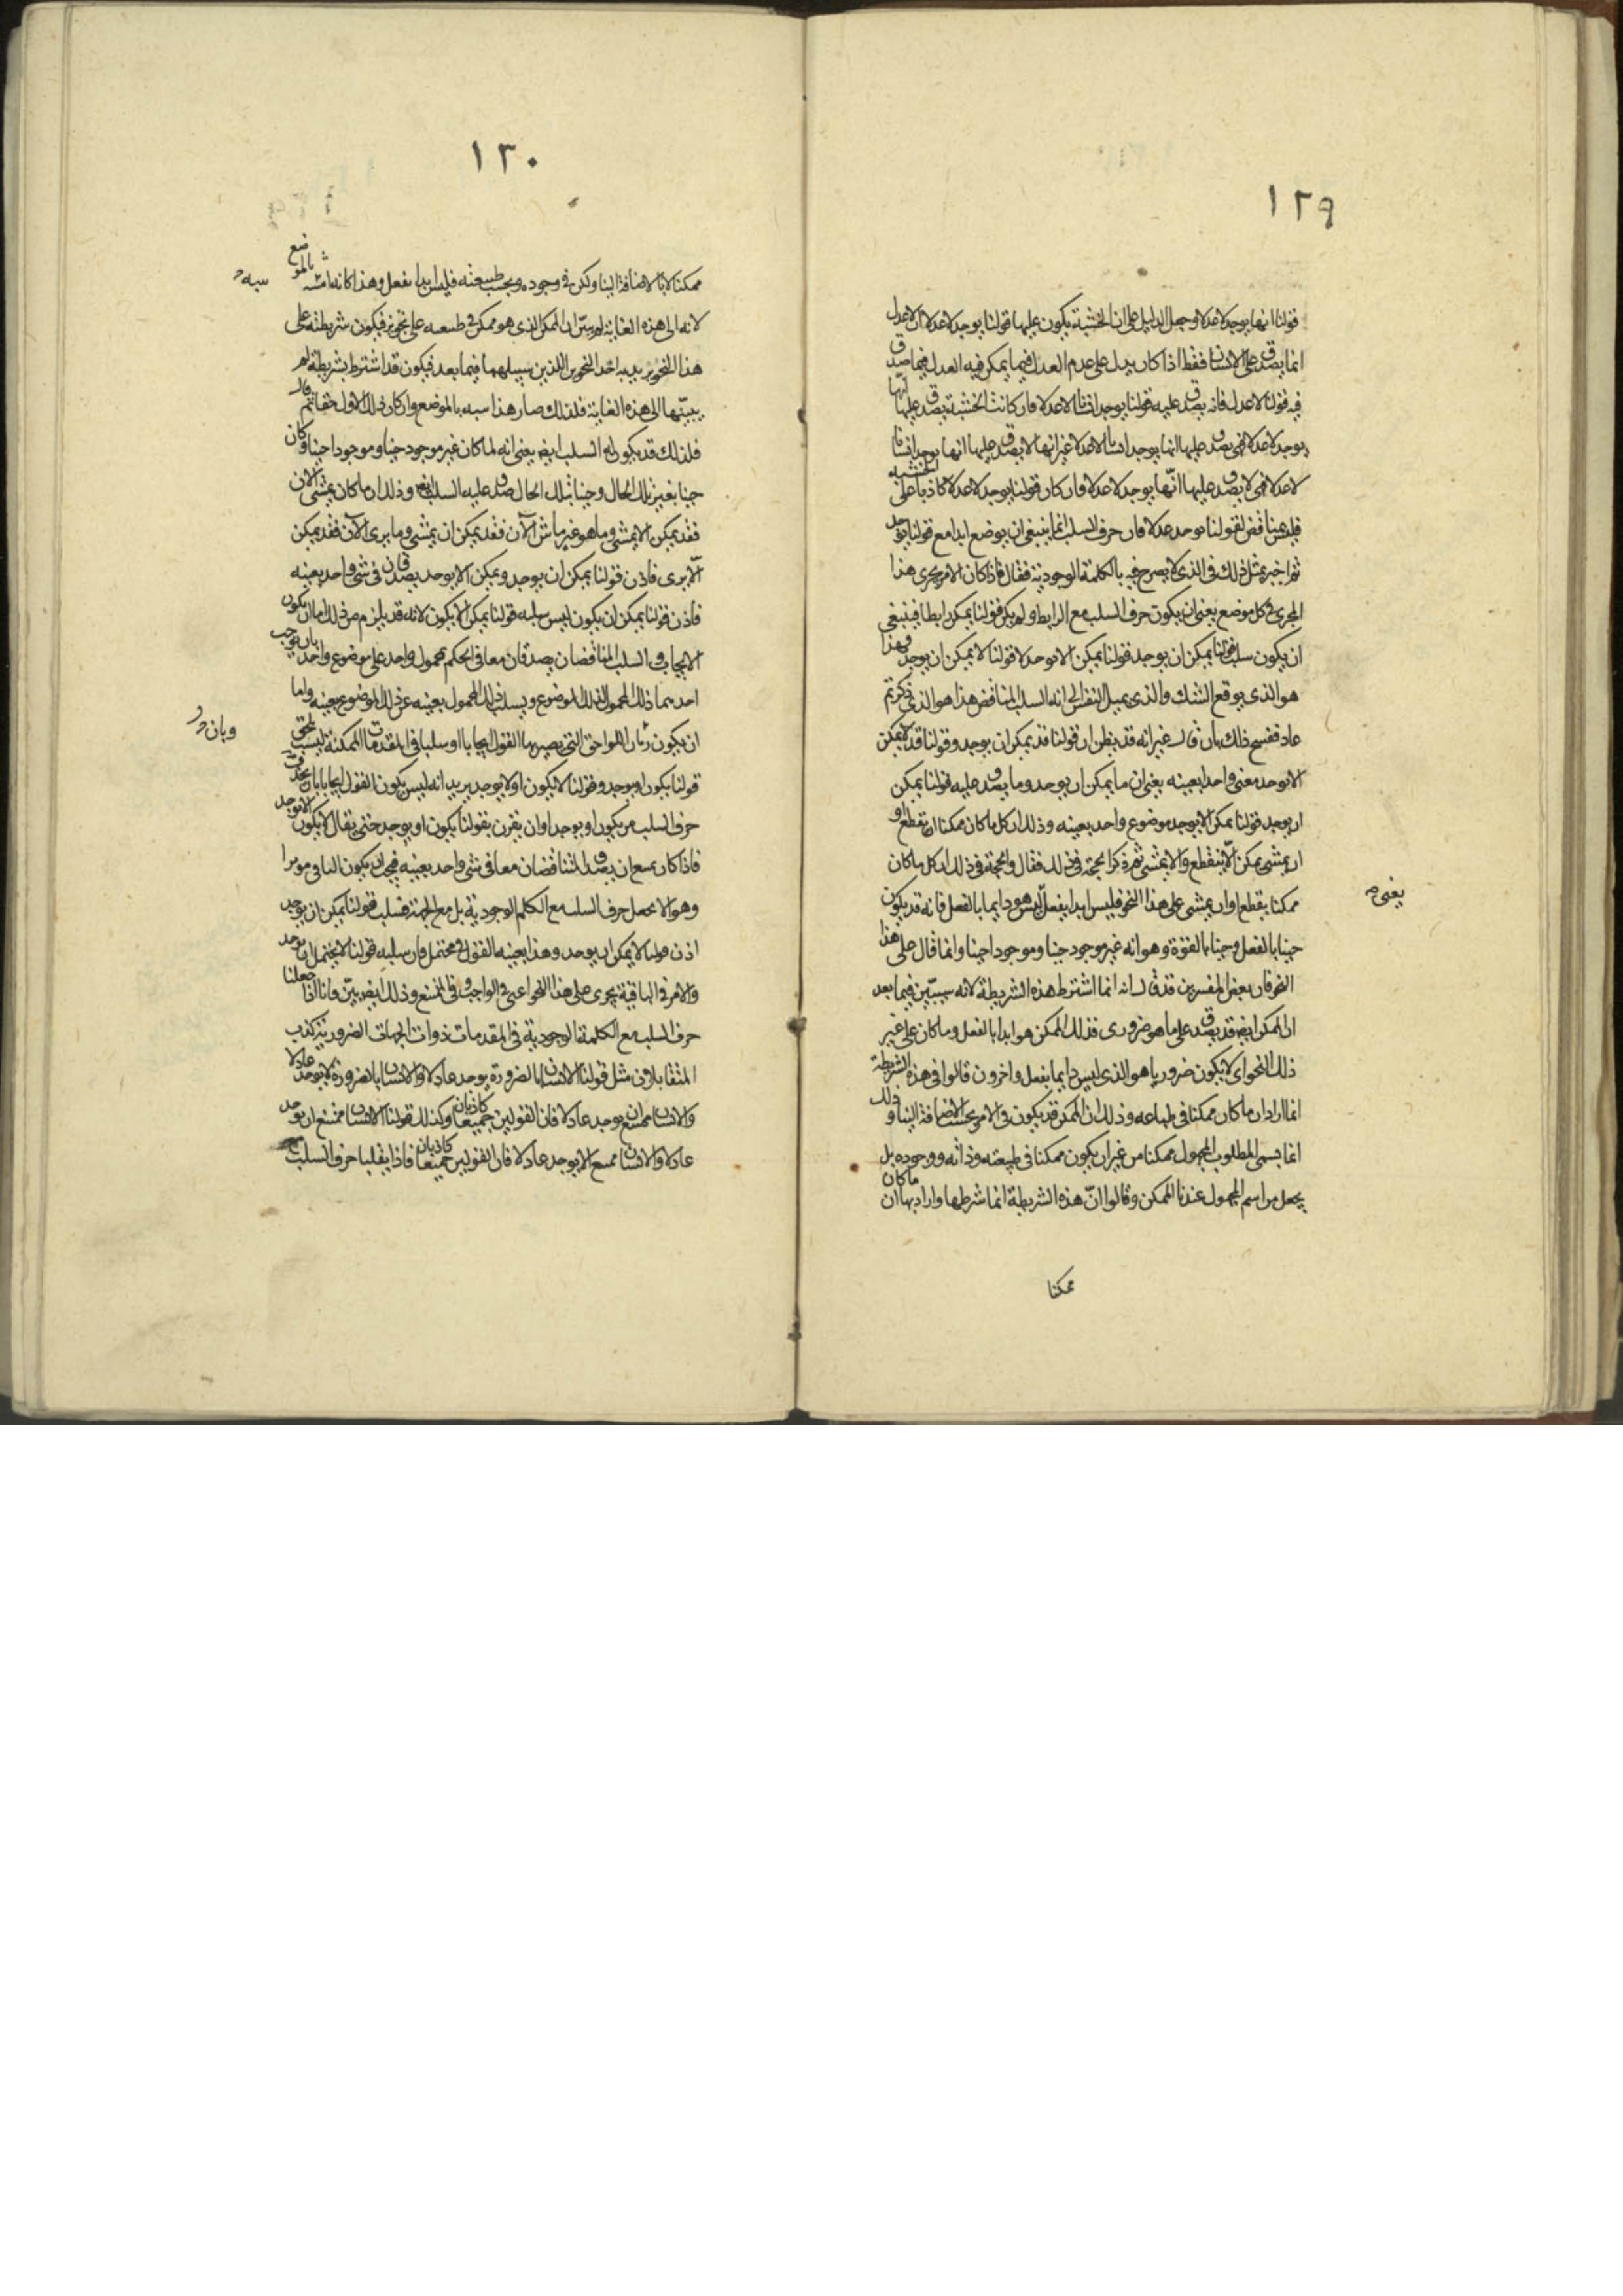 ١٢٩
قولنا انها يوجد لا عدلا وجعل الدليل على ان الخشبة يكون عليها قولنا يوجد لا عدلا ان لا عدل
انما يصدق على الانسان فقط اذا كان يدل على عدم العدل فيما يمكن فيه العدل فيما صدق
فيه قولنا لا عدل فانه يصدق عليه قولنا يوجد انسانا لا عدلا فان كانت الخشبة يصدق عليها انها
يوجد لا عدلا فهي يصدق عليها انها يوجد انسانا لا عدلا غير انها لا يصدق عليها انها يوجد انسانا
لا عدلا فهي لا يصدق عليها انها يوجد لا عدلا فان كان قولنا يوجد لا عدلا كاذبا على الخشبة
فليس يناقض لقولنا يوجد عدلا فان حرف السلب انما ينبغي ان يوضع ابدا مع قولنا يوجد
ثم اخبر بمثل ذلك في الذي لا يصرح فيه بالكلمة الوجودية فقال فاذا كان الامر يجرى هذا
المجرى في كل موضع يعني ان يكون حرف السلب مع الرابط ولم يكن قولنا يمكن رابطا فينبغي
ان يكون سلب قولنا يمكن ان يوجد قولنا يمكن الا يوجد لا قولنا لا يمكن ان يوجد وهذا
هو الذي يوقع الشك والذي يميل النفس الى انه السلب المناقض هذا هو الذي ذكر ثم
عاد ففسح ذلك بان قال غير انه قد يظن ان قولنا قد يمكن ان يوجد وقولنا قد لا يمكن
الا يوجد معنى واحدا بعينه يعني ان ما يمكن ان يوجد وما يصدق عليه قولنا يمكن
ان يوجد قولنا يمكن الا يوجد موضوع واحد بعينه وذلك ان كل ما كان ممكنا ان ينقطع او
ان يمشى يمكن الا ينقطع والا يمشى ثم ذكر الحجة في ذلك فقال والحجة في ذلك ان كل ما كان
ممكنا يقطع او ان يمشى على هذا النحو فليس ابدا يفعل ليس هو دايما بالفعل فانه قد يكون
يعني
حينا بالفعل وحينا بالقوة وهو انه غير موجود حينا وموجود احينا وانما قال على هذا
النحو فان بعض المفسرين قد قال انه انما اشترط هذه الشريطة لانه سيبين فيما بعد
ان الممكن ايضا قد يصدق على ما هو ضروري فذلك الممكن هو ابدا بالفعل وما كان على غير
ذلك النحو اى لا يكون ضروريا هو الذي ليس دايما يفعل واخرون قالوا في هذه الشريطة
انما اراد ان ما كان ممكنا في طباعه وذلك ان الممكن قد يكون في الامر بحسب الاضافة الينا وذلك
انما يسمى المطلوب المجهول ممكنا من غير ان يكون ممكنا في طبيعته وذاته ووجوده بل
يجعل من اسم المجهول عندنا الممكن وقالوا ان هذه الشريطة انما شرطها واراد بها ان ما كان
ممكنا
١٣٠
ممكنا لا بالاضافة الينا ولكن في وجوده وبحسب طبيعته فليس ابدا يفعل وهذا كانه اشبه بالموضع
لانه الى هذه الغاية لم يبين ان الممكن الذي هو ممكن في طبيعه على نحوين فيكون شريطته على
هذا النحو يريد به احد النحوين اللذين سيبلهما فيما بعد فيكون قد اشترط بشريطة لم
يبينها الى هذه الغاية فلذلك صار هذا شبه بالموضع وان كان ذلك الاول حقا ثم قال
فلذلك قد يكون له السلب ايضا يعني انه لما كان غير موجود حينا وموجودا حينا وكان
حينا بغير تلك الحال وحينا بتلك الحال صدق عليه السلب ايضا وذلك ان ما كان يمشى الان
فقد يمكن الا يمشى وما هو غير ماش الان فقد يمكن ان يمشى وما يرى الان فقد يمكن
الا يرى فاذن قولنا يمكن ان يوجد ويمكن الا يوجد يصدقان في شى واحد بعينه
فاذن قولنا يمكن ان يكون ليس سلبه قولنا يمكن الا يكون لانه قد يلزم من ذلك اما ان يكون
الايجاب والسلب المناقضان يصدقان معا في الحكم بمحمول واحد على موضوع واحد بان يوجب
احدهما ذلك المحمول لذلك الموضوع ويسلب ذلك المحمول بعينه عن ذلك الموضوع بعينه واما
ان يكون ان اللواحق التي تصير بها القول ايجابا او سلبا في المقدمات الممكنة ليست تلحق
وبان
قولنا يكون او يوجد وقولنا لا يكون او لا يوجد يريد انه ليس يكون القول ايجابا بان يحذف
حرف السلب من يكون او يوجد او ان يقرن بقولنا يكون او يوجد حتى يقال لا يكون او لا يوجد
فاذا كان يمتنع ان يصدق المتناقضان معا في شى واحد بعينه فيجب ان يكون الباقي موثرا
وهو الا يجعل حرف السلب مع الكلم الوجودية بل مع الجهة فسلب قولنا يمكن ان يوجد
اذن قولنا لا يمكن ان يوجد وهذا بعينه القول في محتمل فان سلبه قولنا لا يحتمل ان يوجد
والامر في الباقية يجرى على هذا النحو اعني في الواجب وفي الممتنع وذلك ايضا بين وانا اذا جعلنا
حرف السلب مع الكلمة الوجودية في المقدمات ذوات الجهات الضرورية كذب
المتقابلان مثل قولنا الانسان بالضرورة يوجد عادلا والانسان بالضرورة لا يوجد عادلا
والانسان ممتنع ان يوجد عادلا فان القولين جميعا كاذبان وكذلك قولنا الانسان ممتنع ان يوجد
عادلا والانسان ممتنع الا يوجد عادلا فان القولين جميعا كاذبان فاذا يقلبا حرف السلب